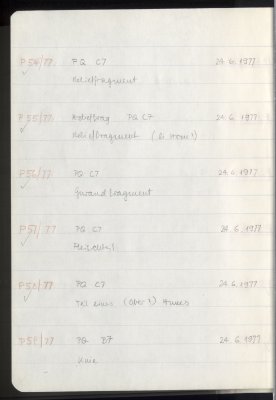 P 54/77 PQ C7 24.6.1977
Relieffragment
P 55/77 PQ C7 24.6.1977
Relieffragment
P 56/77 PQ C7 24.6.1977
Gewandfragment
P 57/77 PQ C7 24.6.1977
P 58/77 PQ C7 24.6.1977
Teil eines (Ober?) Armes
P 59/77 PQ 24.6.1977
Knie